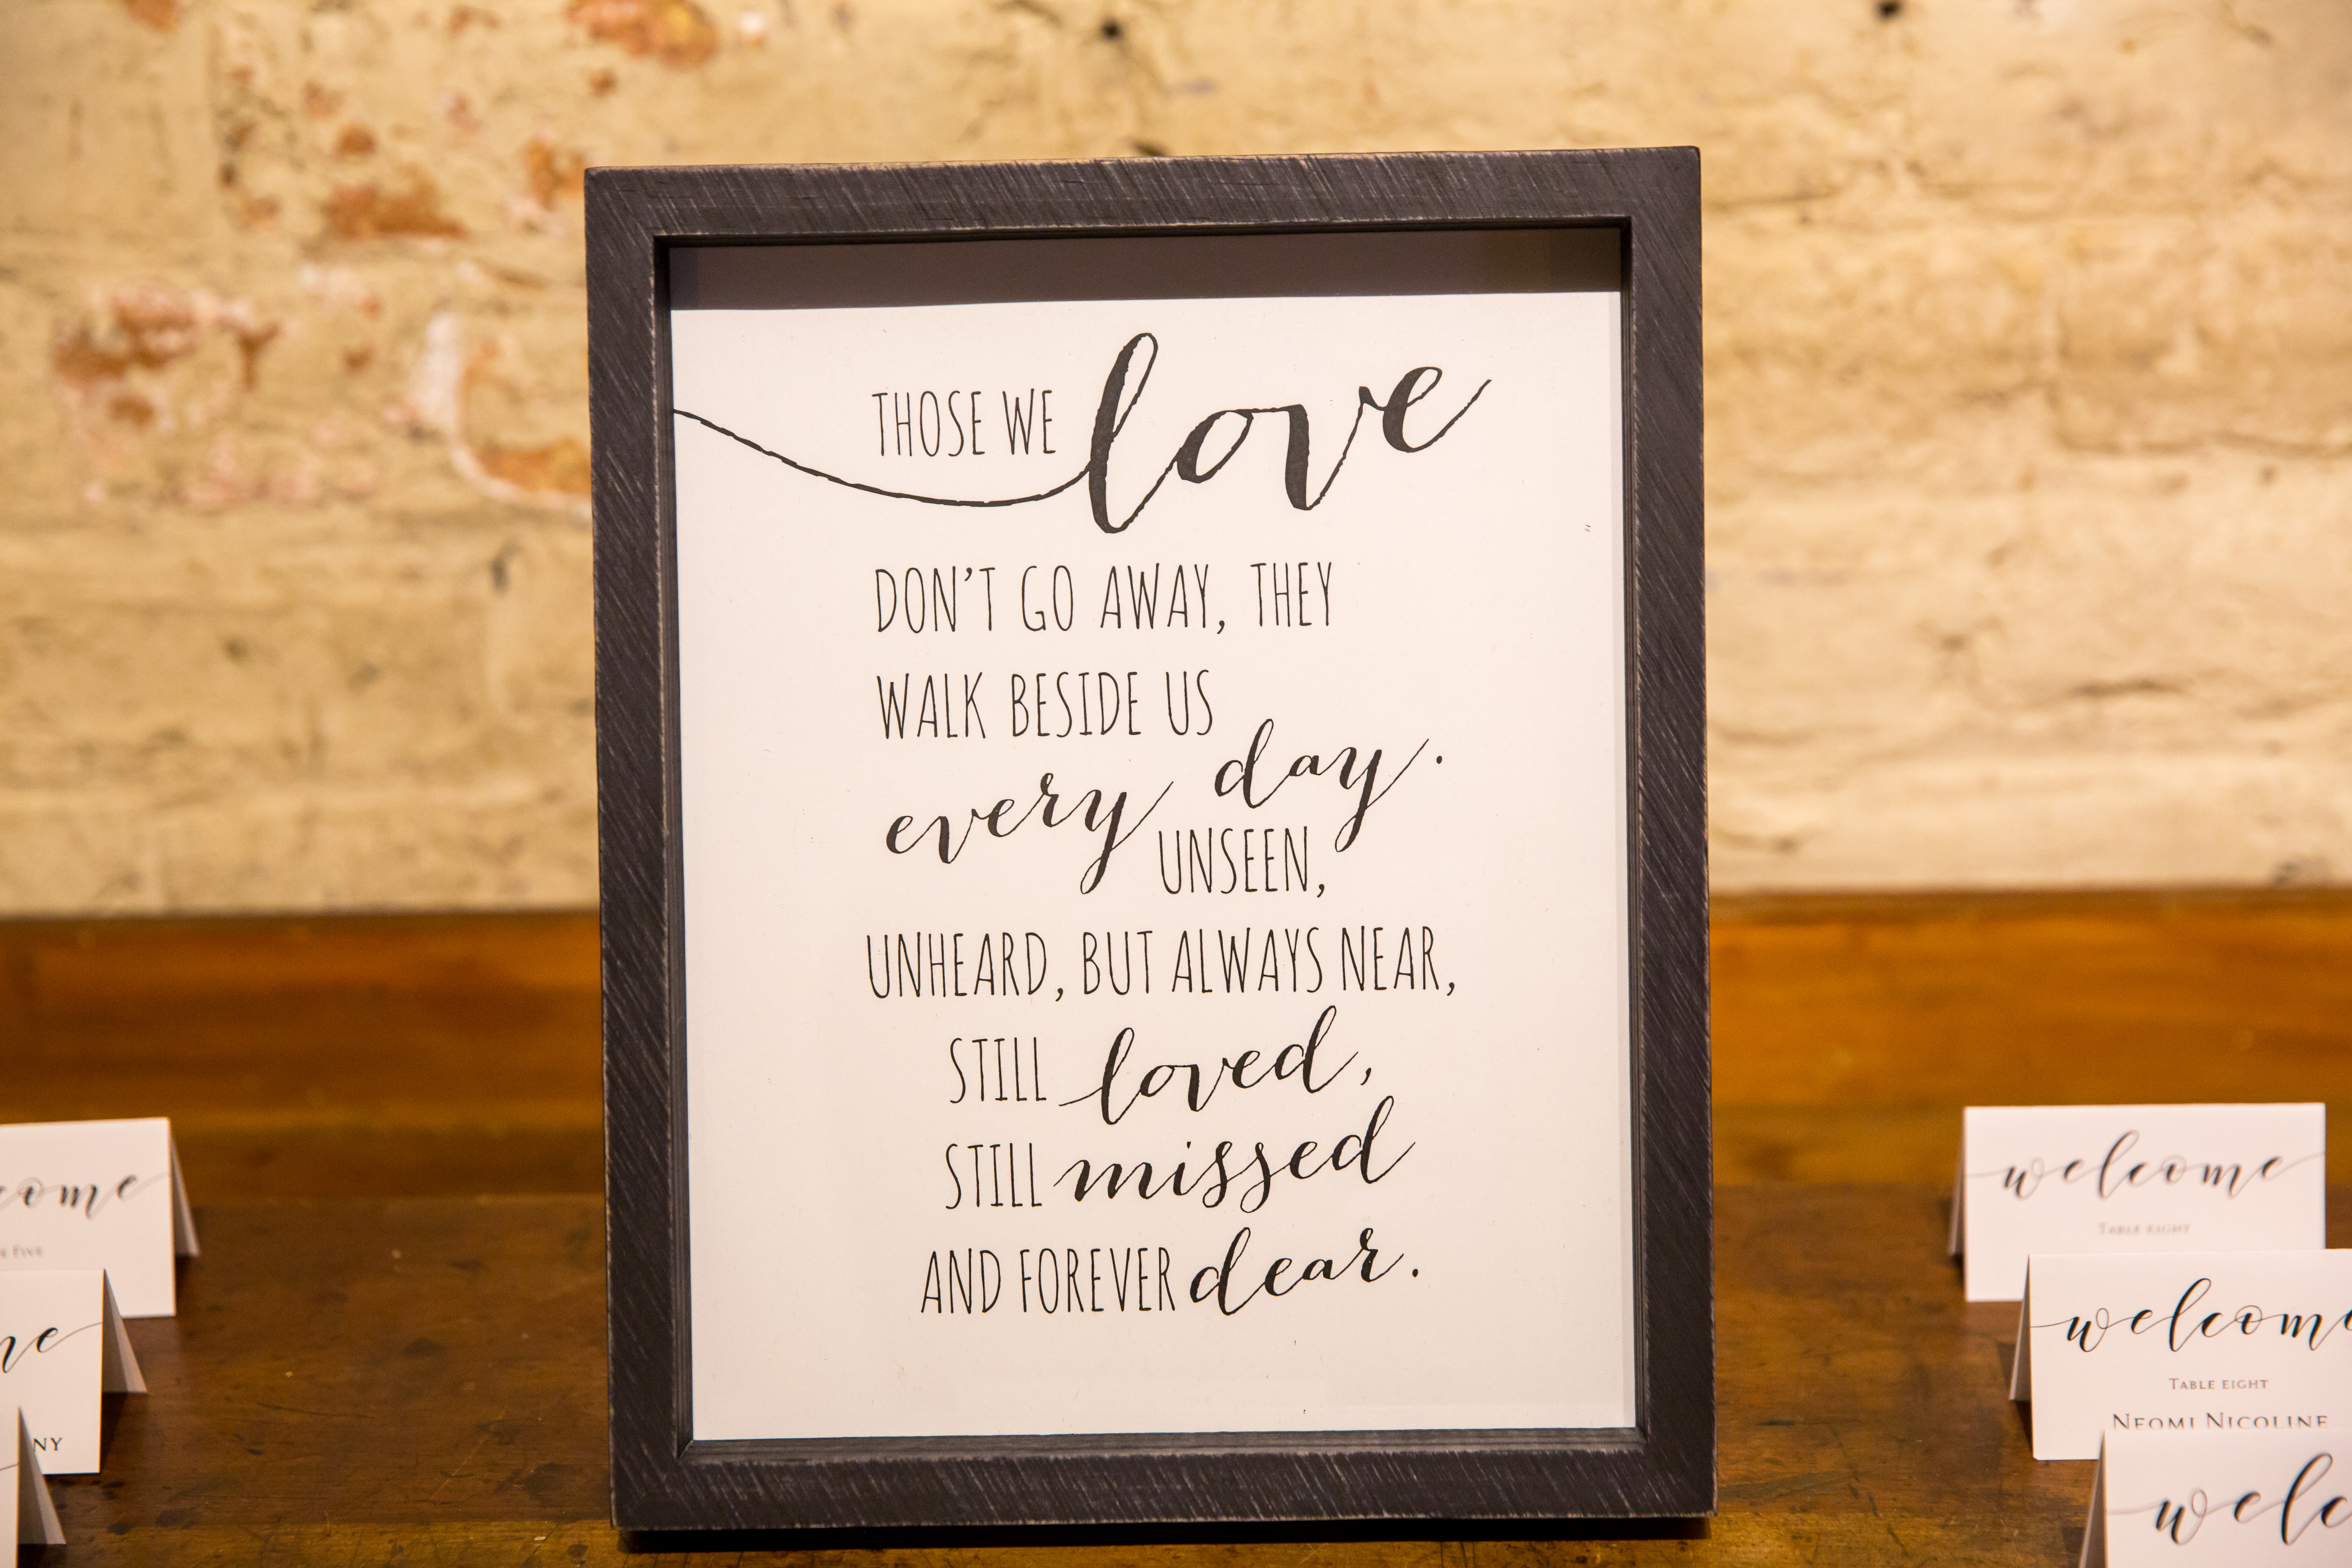 THOSE WE love
DON'T GO AWAY, THEY
WALK BESIDE US
every day.
UNSEEN,
UNHEARD, BUT ALWAYS NEAR,
STILL loved,
STILL missed
AND FOREVER dear.
welcome
TABLE EIGHT
welcome
TABLE EIGHT
NEOMI NICOLINE
FIVE